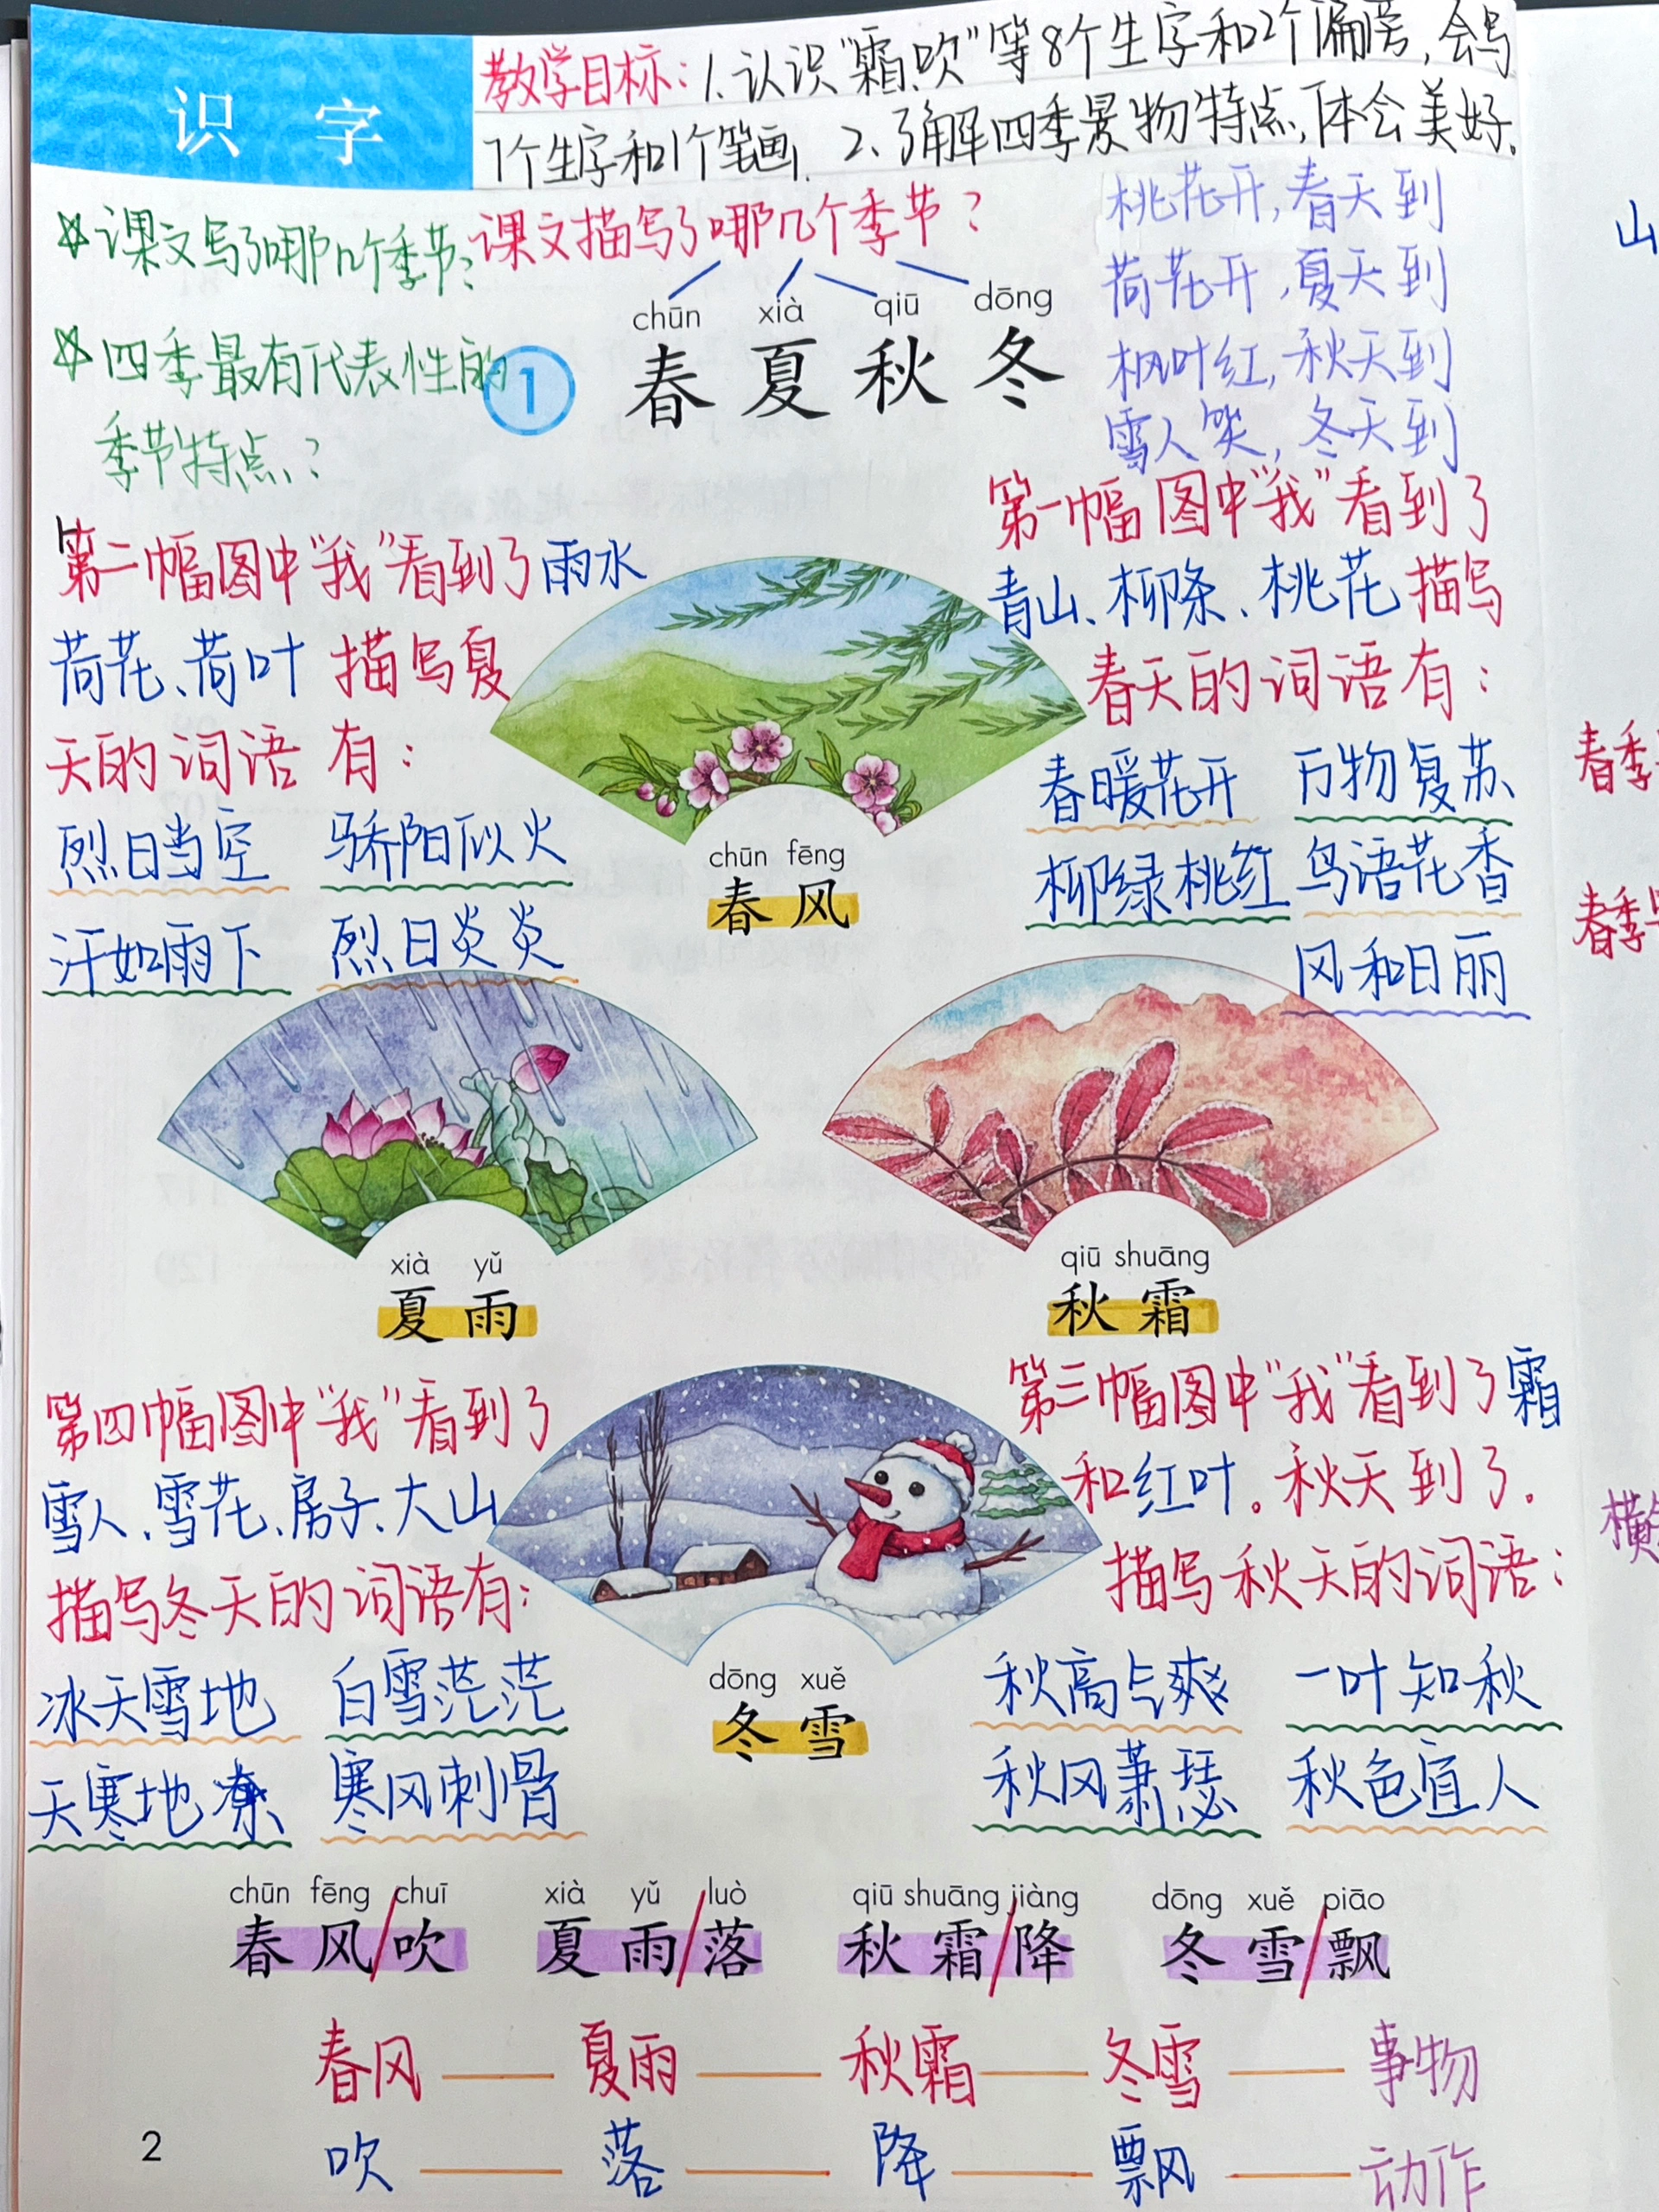 识字
教学目标：1.认识“霜、吹”等8个生字和2个偏旁，会写
7个生字和1个笔画。2、了解四季景物特点，体会美好。
☆课文写了哪几个季节？
☆四季最有代表性的
季节特点？
课文描写了哪几个季节？
chūn xià qiū dōng
1 春夏秋冬
桃花开，春天到
荷花开，夏天到
枫叶红，秋天到
雪人笑，冬天到
第一幅图中“我”看到了
青山、柳条、桃花描写
春天的词语有：
春暖花开 万物复苏
柳绿桃红 鸟语花香
风和日丽
第二幅图中“我”看到了雨水
荷花、荷叶 描写夏
天的词语有：
烈日当空 骄阳似火
汗如雨下 烈日炎炎
chūn fēng
春风
xià yǔ
夏雨
qiū shuāng
秋霜
第四幅图中“我”看到了
雪人、雪花、房子、大山
描写冬天的词语有：
冰天雪地 白雪茫茫
天寒地冻 寒风刺骨
第三幅图中“我”看到了霜
和红叶。秋天到了。
描写秋天的词语：
秋高气爽 一叶知秋
秋风萧瑟 秋色宜人
dōng xuě
冬雪
chūn fēng chuī xià yǔ luò qiū shuāng jiàng dōng xuě piāo
春风/吹 夏雨/落 秋霜/降 冬雪/飘
春风——夏雨——秋霜——冬雪——事物
吹——落——降——飘——动作
2
山
春季
春季
横